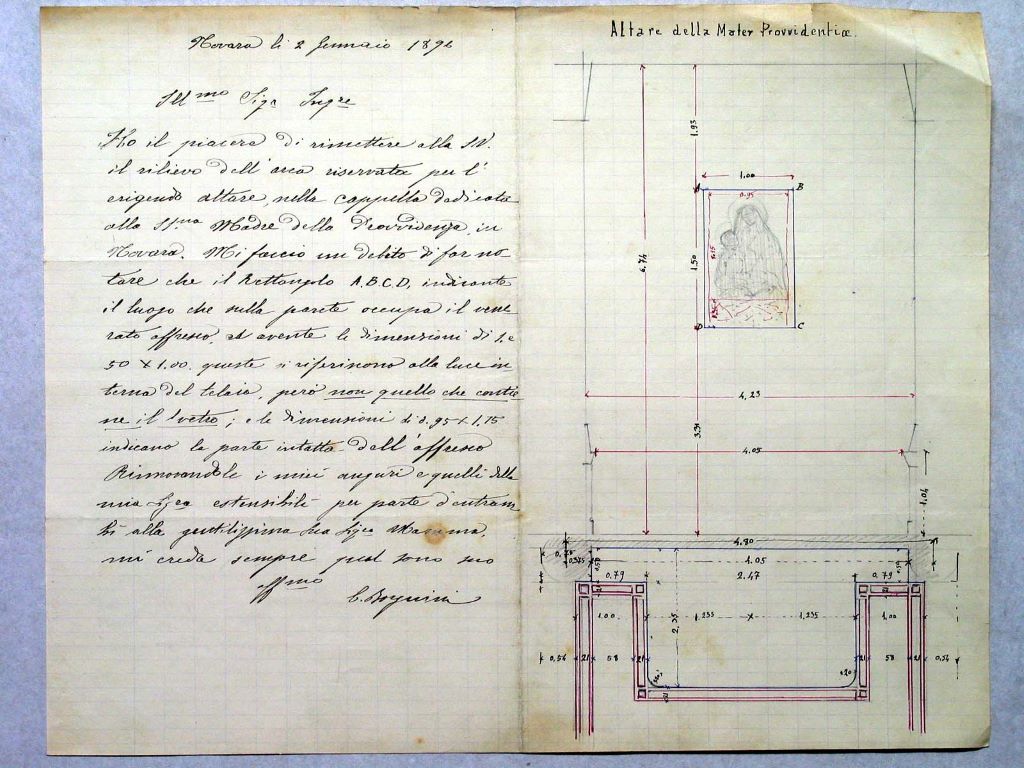 Novara li 2 Gennaio 1896
Ill.mo Sigr Ingre
Ho il piacere di rimettere alla S.V.
il rilievo dell'area riservata per l'
erigendo altare nella cappella dedicata
alla SS.ma Madre della Provvidenza in
Novara. Mi faccio un debito di far no-
tare che il Rettangolo A.B.C.D. indicante
il luogo che nella parete occupa il vene-
rato affresco, ed avente le dimensioni di 1.
50 X 1.00. queste si riferiscono alla luce in-
terna del telaio, però non quello che contie-
ne il vetro; e le dimensioni di 0.95 X 1.15
indicano la parte intatta dell'affresco
Rinnovandole i miei auguri e quelli della
mia Sig.ra estensibili per parte d'entram-
bi alla gentilissima Sua Sig.ra Mamma,
mi creda sempre qual sono suo
aff.mo
Altare della Mater Provvidentiæ.
1.93
1.00
A B
0.95
1.15
4.74
1.50
D C
4,23
3.31
4.05
1.04
4.80
0.74
0.375
4.05
0.79 2.47 0.79
1.00 1.235 1,235 1,00
2,35
0,54 21 58 21 21 58 21 0,54
20